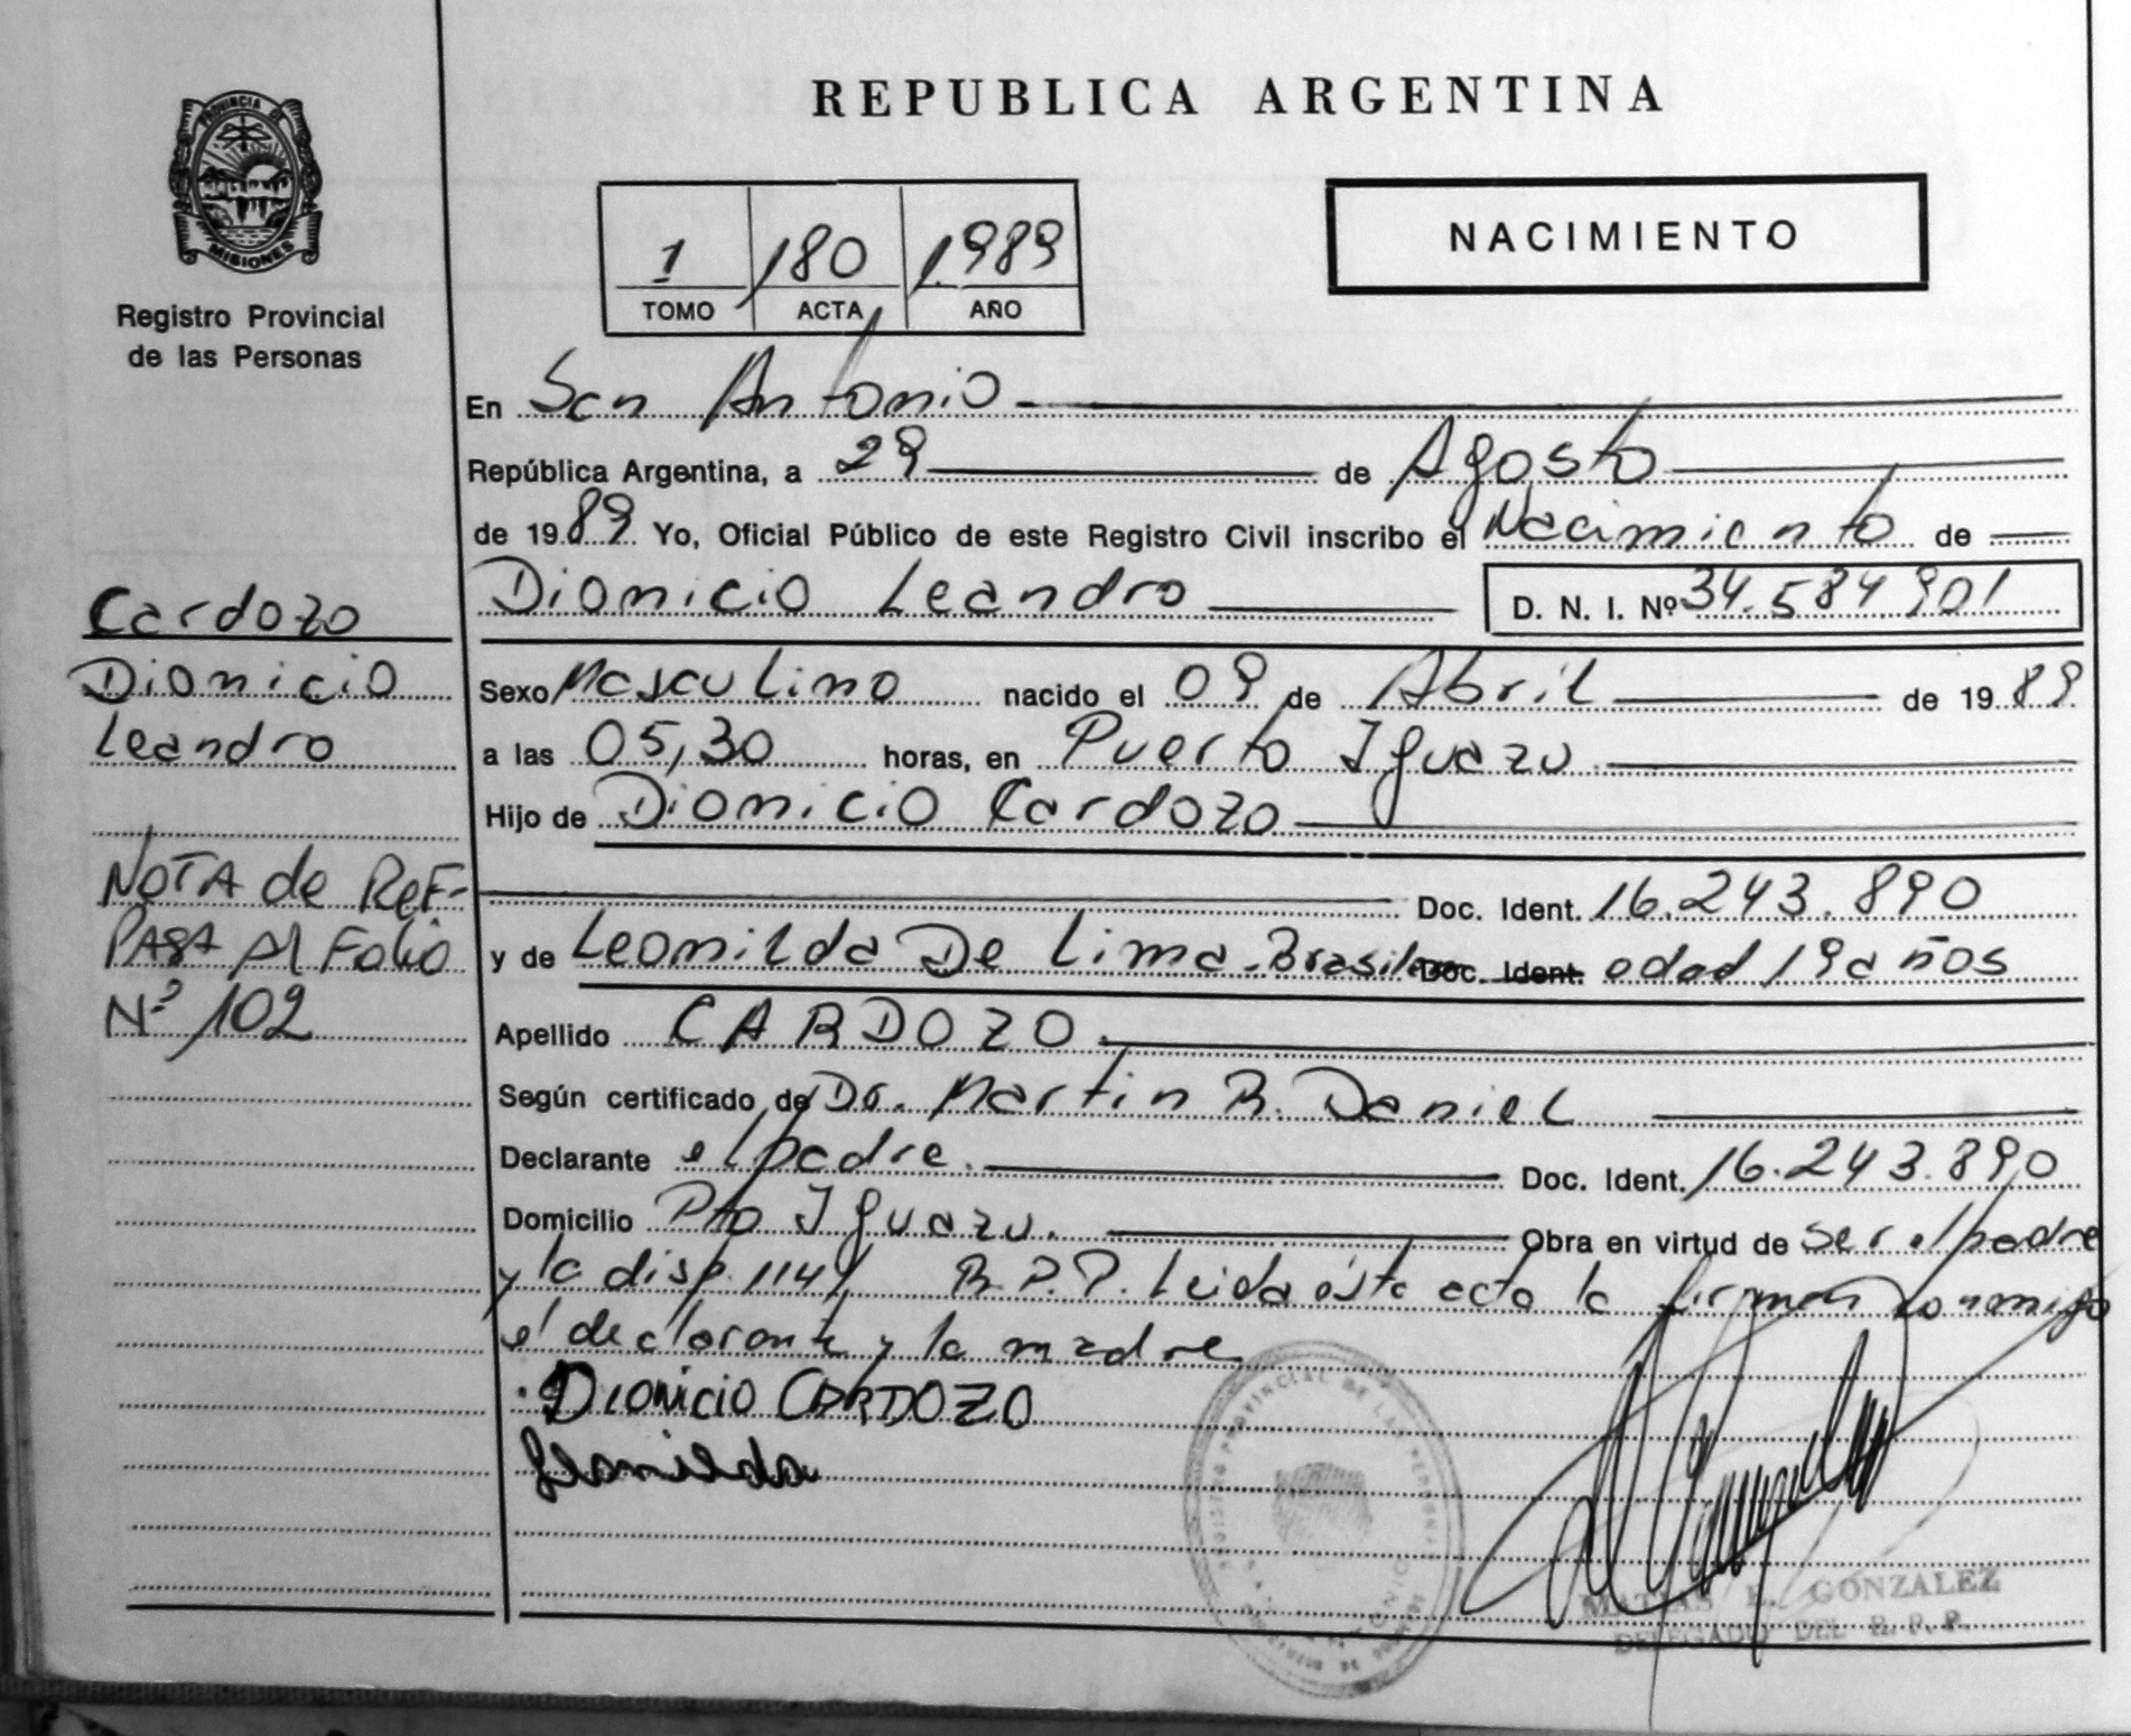 PROVINCIA DE
MISIONES
Registro Provincial
de las Personas
REPUBLICA ARGENTINA
1 180 1.989
TOMO ACTA AÑO
NACIMIENTO
En San Antonio
República Argentina, a 29 de Agosto
de 1989 Yo, Oficial Público de este Registro Civil inscribo el Nacimiento de
Dionicio Leandro D. N. I. Nº 34.584.901
Sexo Masculino nacido el 09 de Abril de 1989
a las 05,30 horas, en Puerto Iguazu
Hijo de Dionicio Cardozo
Doc. Ident. 16.243.890
y de Leonilda De Lima - Brasilera Doc. Ident. edad 19 años
Apellido CARDOZO
Según certificado de Dr. Martin R. Daniel
Declarante el padre. Doc. Ident. 16.243.890
Domicilio Pto Iguazu. Obra en virtud de ser el padre
y la disp. 114/ R.P.P. Leida ésta acta la firman conmigo
el declarante y la madre
Dionicio CARDOZO
Leonilda
Cardozo
Dionicio
Leandro
NOTA de REF-
PASA Al Folio
Nº 102
REGISTRO PROVINCIAL DE LAS PERSONAS
MATIAS E. GONZALEZ
DELEGADO DEL R. P. P.